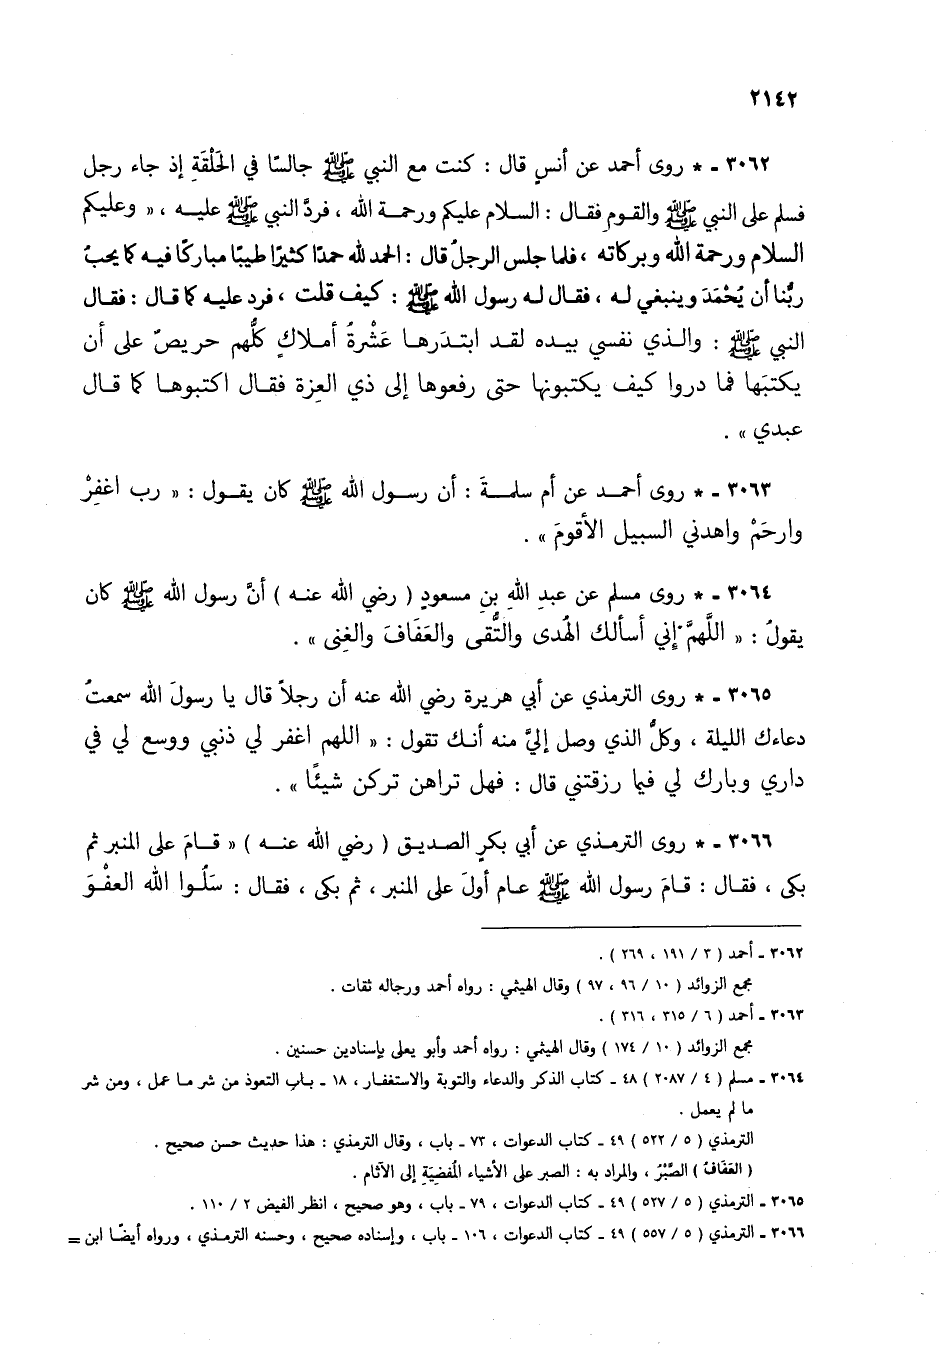 ٢١٤٢
٣٠٦٢ ـ * روى أحمد عن أنسٍ قال : كنت مع النبي ﷺ جالسًا في الحَلْقَةِ إذ جاء رجل
فسلم على النبي ﷺ والقوم فقال : السلام عليكم ورحمة الله ، فردَّ النبي ﷺ عليه ، « وعليكم
السلام ورحمة الله وبركاته ، فلما جلس الرجلُ قال : الحمد لله حمدًا كثيرًا طيبًا مباركًا فيه كما يحبُّ
ربُّنا أن يُحْمَدَ وينبغي له ، فقال له رسول الله ﷺ : كيف قلت ، فرد عليه كما قال : فقال
النبي ﷺ : والذي نفسي بيده لقد ابتدَرها عَشْرةُ أملاكٍ كلُّهم حريصٌ على أن
يكتبَها فما دروا كيف يكتبونها حتى رفعوها إلى ذي العزة فقال اكتبوها كما قال
عبدي » .
٣٠٦٣ ـ * روى أحمد عن أم سلمةَ : أن رسول الله ﷺ كان يقول : « رب اغفِرْ
وارحَمْ واهدني السبيل الأقومَ » .
٣٠٦٤ ـ * روى مسلم عن عبدِ اللهِ بنِ مسعودٍ ( رضي الله عنه ) أنَّ رسول الله ﷺ كان
يقولُ : « اللَّهمَّ إني أسألك الهُدى والتُّقى والعَفَافَ والغِنى » .
٣٠٦٥ ـ * روى الترمذي عن أبي هريرة رضي الله عنه أن رجلاً قال يا رسولَ الله سمعتُ
دعاءك الليلة ، وكلُّ الذي وصل إليَّ منه أنك تقول : « اللهم اغفر لي ذنبي ووسع لي في
داري وبارك لي فيما رزقتني قال : فهل تراهن تركن شيئًا » .
٣٠٦٦ ـ * روى الترمذي عن أبي بكرٍ الصديق ( رضي الله عنه ) « قامَ على المنبر ثم
بكى ، فقال : قامَ رسول الله ﷺ عام أولَ على المنبر ، ثم بكى ، فقال : سَلُوا الله العفْوَ
٣٠٦٢ ـ أحمد ( ٣ / ١٩١ ، ٢٦٩ ) .
مجمع الزوائد ( ١٠ / ٩٦ ، ٩٧ ) وقال الهيثمي : رواه أحمد ورجاله ثقات .
٣٠٦٣ ـ أحمد ( ٦ / ٣١٥ ، ٣١٦ ) .
مجمع الزوائد ( ١٠ / ١٧٤ ) وقال الهيثمي : رواه أحمد وأبو يعلى بإسنادين حسنين .
٣٠٦٤ ـ مسلم ( ٤ / ٢٠٨٧ ) ٤٨ ـ كتاب الذكر والدعاء والتوبة والاستغفار ، ١٨ ـ باب التعوذ من شر ما عمل ، ومن شر
ما لم يعمل .
الترمذي ( ٥ / ٥٢٢ ) ٤٩ ـ كتاب الدعوات ، ٧٣ ـ باب ، وقال الترمذي : هذا حديث حسن صحيح .
( العَفَافُ ) الصَّبْرُ ، والمراد به : الصبر على الأشياء المُفضيَة إلى الآثام .
٣٠٦٥ ـ الترمذي ( ٥ / ٥٢٧ ) ٤٩ ـ كتاب الدعوات ، ٧٩ ـ باب ، وهو صحيح ، انظر الفيض ٢ / ١١٠ .
٣٠٦٦ ـ الترمذي ( ٥ / ٥٥٧ ) ٤٩ ـ كتاب الدعوات ، ١٠٦ ـ باب ، وإسناده صحيح ، وحسنه الترمذي ، ورواه أيضًا ابن =